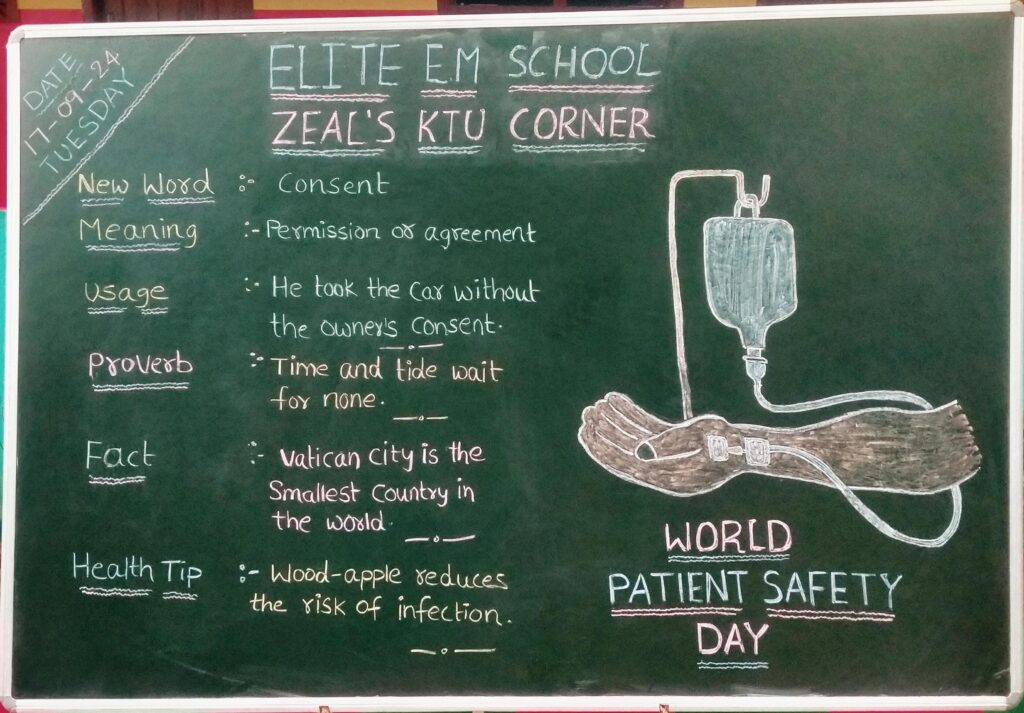 DATE
17-09-24
TUESDAY
ELITE E.M SCHOOL
ZEAL'S KTU CORNER
New Word :- Consent
Meaning :- Permission or agreement
Usage :- He took the car without
the owner's consent.
Proverb :- Time and tide wait
for none.
Fact :- Vatican city is the
Smallest Country in
the world.
Health Tip :- Wood-apple reduces
the risk of infection.
WORLD
PATIENT SAFETY
DAY